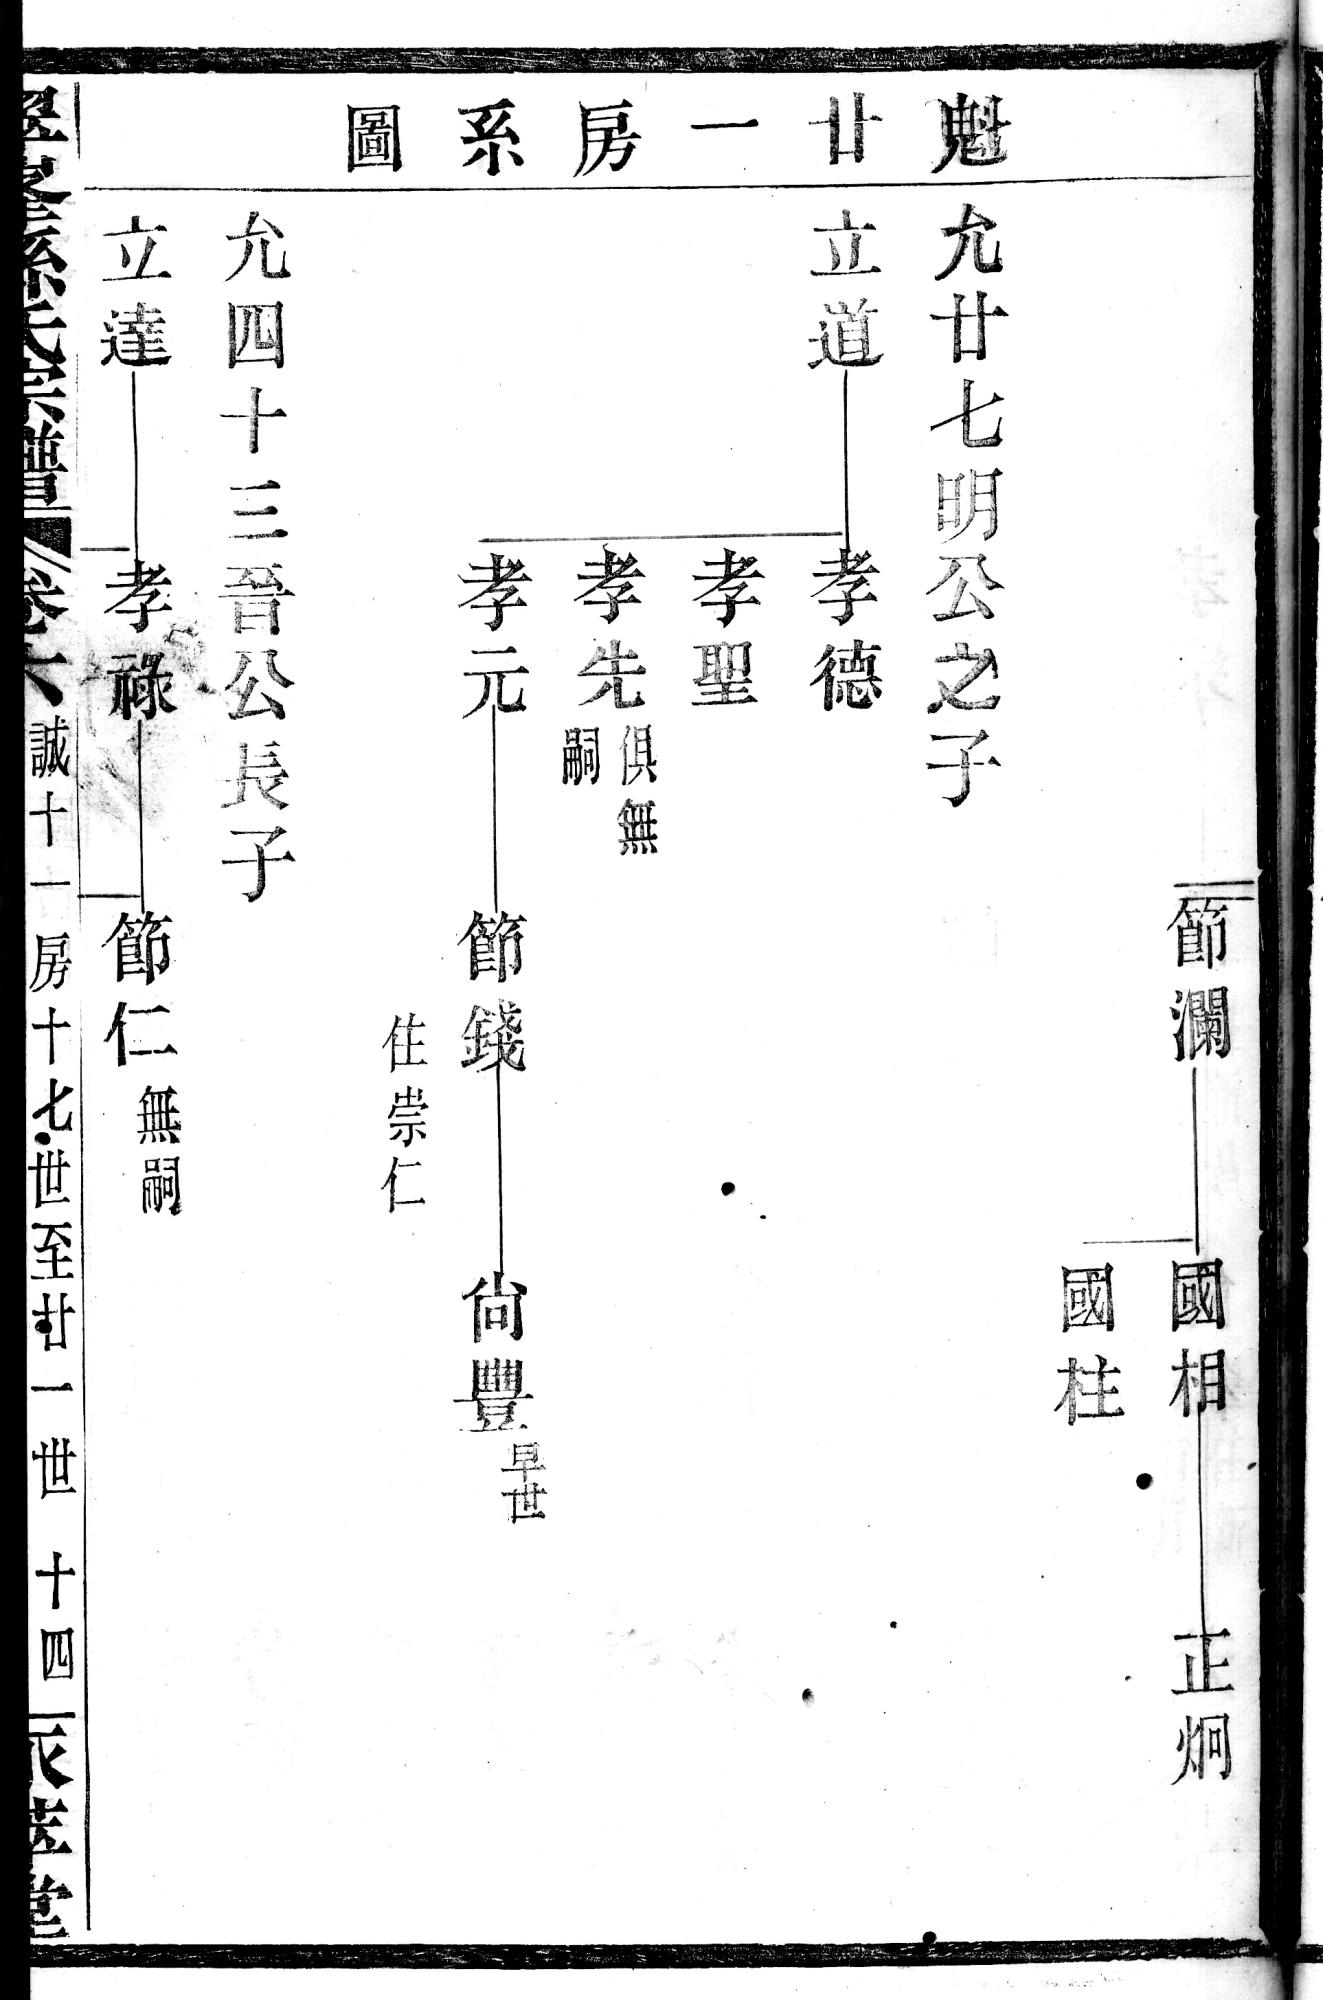 魁廿一房系圖
節瀾
國相
正炯
國柱
允廿七明公之子
立道
孝德
孝聖
孝先
俱無
嗣
孝元
節錢
尙豐
早世
住崇仁
允四十三晉公長子
立達
孝祿
節仁
無嗣
孫氏宗譜
卷六
誠十一房十七世至廿一世
十四
堂